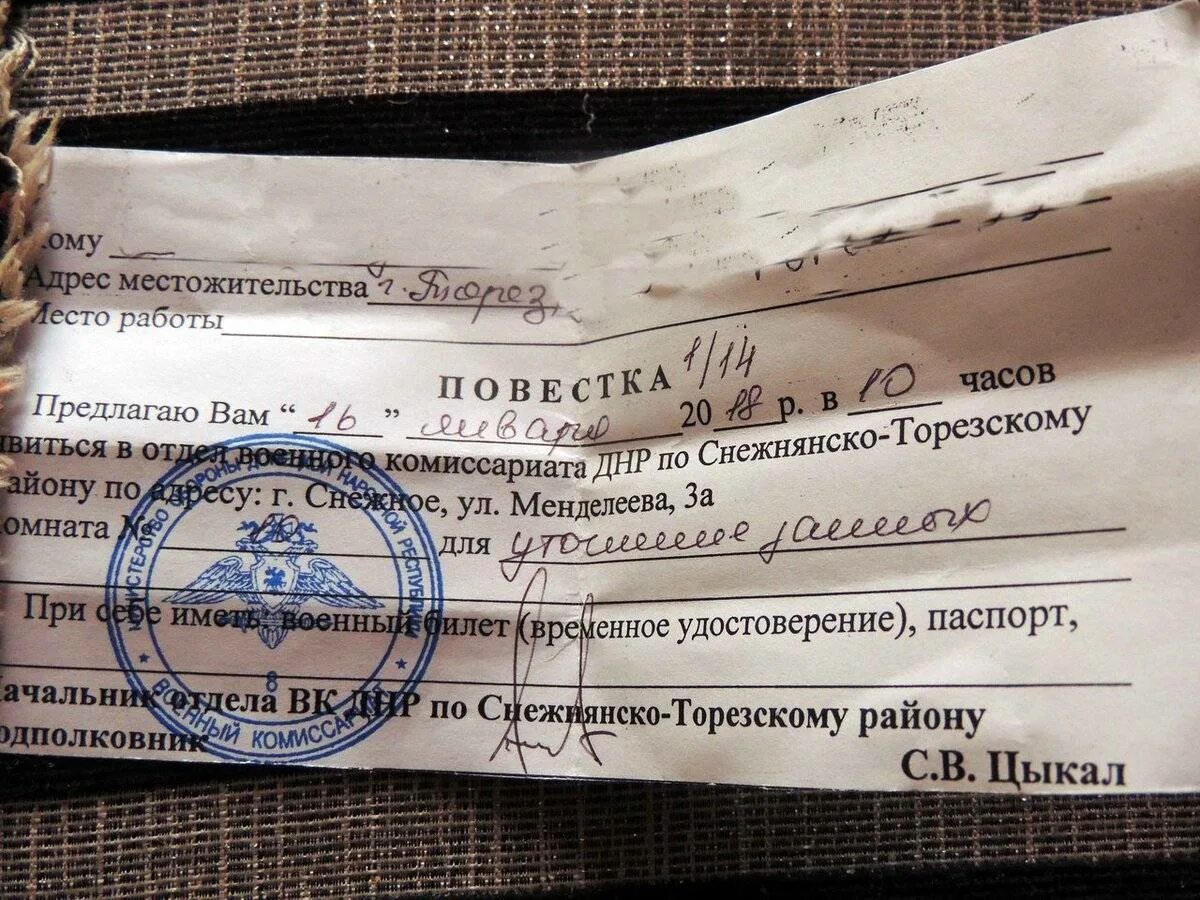 Кому
Адрес местожительства г. Торез,
Место работы
ПОВЕСТКА 1/14
Предлагаю Вам “ 16 ” января 20 18 р. в 10 часов
явиться в отдел военного комиссариата ДНР по Снежнянско-Торезскому
району по адресу: г. Снежное, ул. Менделеева, 3а
комната № 10 для уточнение данных
При себе иметь, военный билет (временное удостоверение), паспорт,
Начальник отдела ВК ДНР по Снежнянско-Торезскому району
подполковник
С.В. Цыкал
МИНИСТЕРСТВО ОБОРОНЫ ДОНЕЦКОЙ НАРОДНОЙ РЕСПУБЛИКИ
8
ВОЕННЫЙ КОМИССАРИАТ